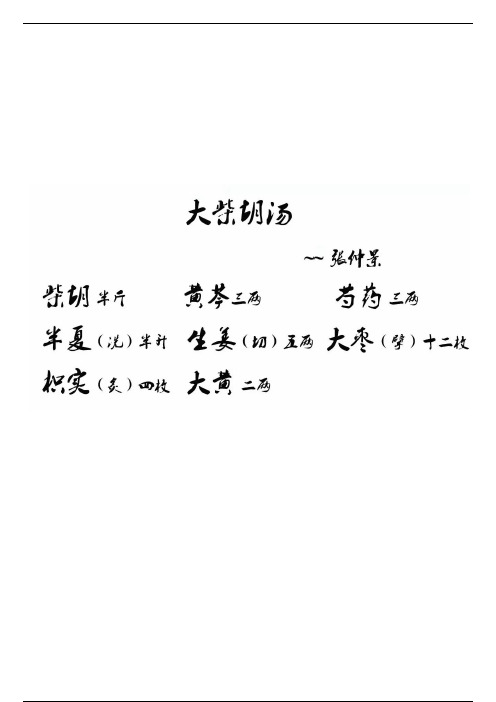 大柴胡汤
~~ 张仲景
柴胡 半斤 黄芩 三两 芍药 三两
半夏（洗）半升 生姜（切）五两 大枣（擘）十二枚
枳实（炙）四枚 大黄 二两